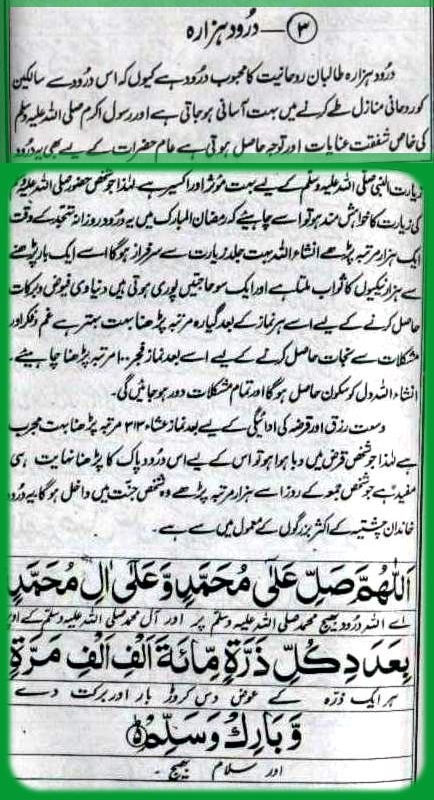 ۳ — درود ہزارہ
درود ہزارہ طالبان روحانیت کا محبوب درود ہے کیوں کہ اس درود سے سالکین
کو روحانی منازل طے کرنے میں بہت آسانی ہو جاتی ہے اور رسول اکرم صلی اللہ علیہ وسلم
کی خاص شفقت عنایات اور توجہ حاصل ہوتی ہے عام حضرات کے لیے بھی یہ درود
زیارت النبی صلی اللہ علیہ وسلم کے لیے بہت مؤثر اور اکسیر ہے لہٰذا جو شخص حضور صلی اللہ علیہ وسلم
کی زیارت کا خواہش مند ہو تو اسے چاہیئے کہ رمضان المبارک میں یہ درود روزانہ تہجد کے وقت
ایک ہزار مرتبہ پڑھے انشاء اللہ بہت جلد زیارت سے سرفراز ہو گا اسے ایک بار پڑھنے
سے ہزار نیکیوں کا ثواب ملتا ہے اور ایک سو حاجتیں پوری ہوتی ہیں دنیاوی فیوض و برکات
حاصل کرنے کے لیے اسے ہر نماز کے بعد گیارہ مرتبہ پڑھنا بہت بہتر ہے غم فکر اور
مشکلات سے نجات حاصل کرنے کے لیے اسے بعد نماز فجر ۱۰۰ مرتبہ پڑھنا چاہیئے ۔
انشاء اللہ دل کو سکون حاصل ہو گا اور تمام مشکلات دور ہو جائیں گی۔
وسعت رزق اور قرضہ کی ادائیگی کے لیے بعد نماز عشاء ۳۱۳ مرتبہ پڑھنا بہت مجرب
ہے لہٰذا جو شخص قرض میں دبا ہوا ہو تو اس کے لیے اس درود پاک کا پڑھنا نہایت ہی
مفید ہے جو شخص جمعہ کے روز اسے ہزار مرتبہ پڑھے وہ شخص جنت میں داخل ہو گا یہ درود
خاندان چشتیہ کے اکثر بزرگوں کے معمول میں سے ہے۔
اَللّٰهُمَّ صَلِّ عَلٰى مُحَمَّدٍ وَّعَلٰى اٰلِ مُحَمَّدٍ
اے اللہ درود بھیج محمد صلی اللہ علیہ وسلم پر اور آل محمد صلی اللہ علیہ وسلم کے اوپر
بِعَدَدِ كُلِّ ذَرَّةٍ مِّائَةَ اَلْفِ اَلْفِ مَرَّةٍ
ہر ایک ذرہ کے عوض دس کروڑ بار اور برکت دے
وَّبَارِكْ وَسَلِّمْ
اور سلام بھیج ۔